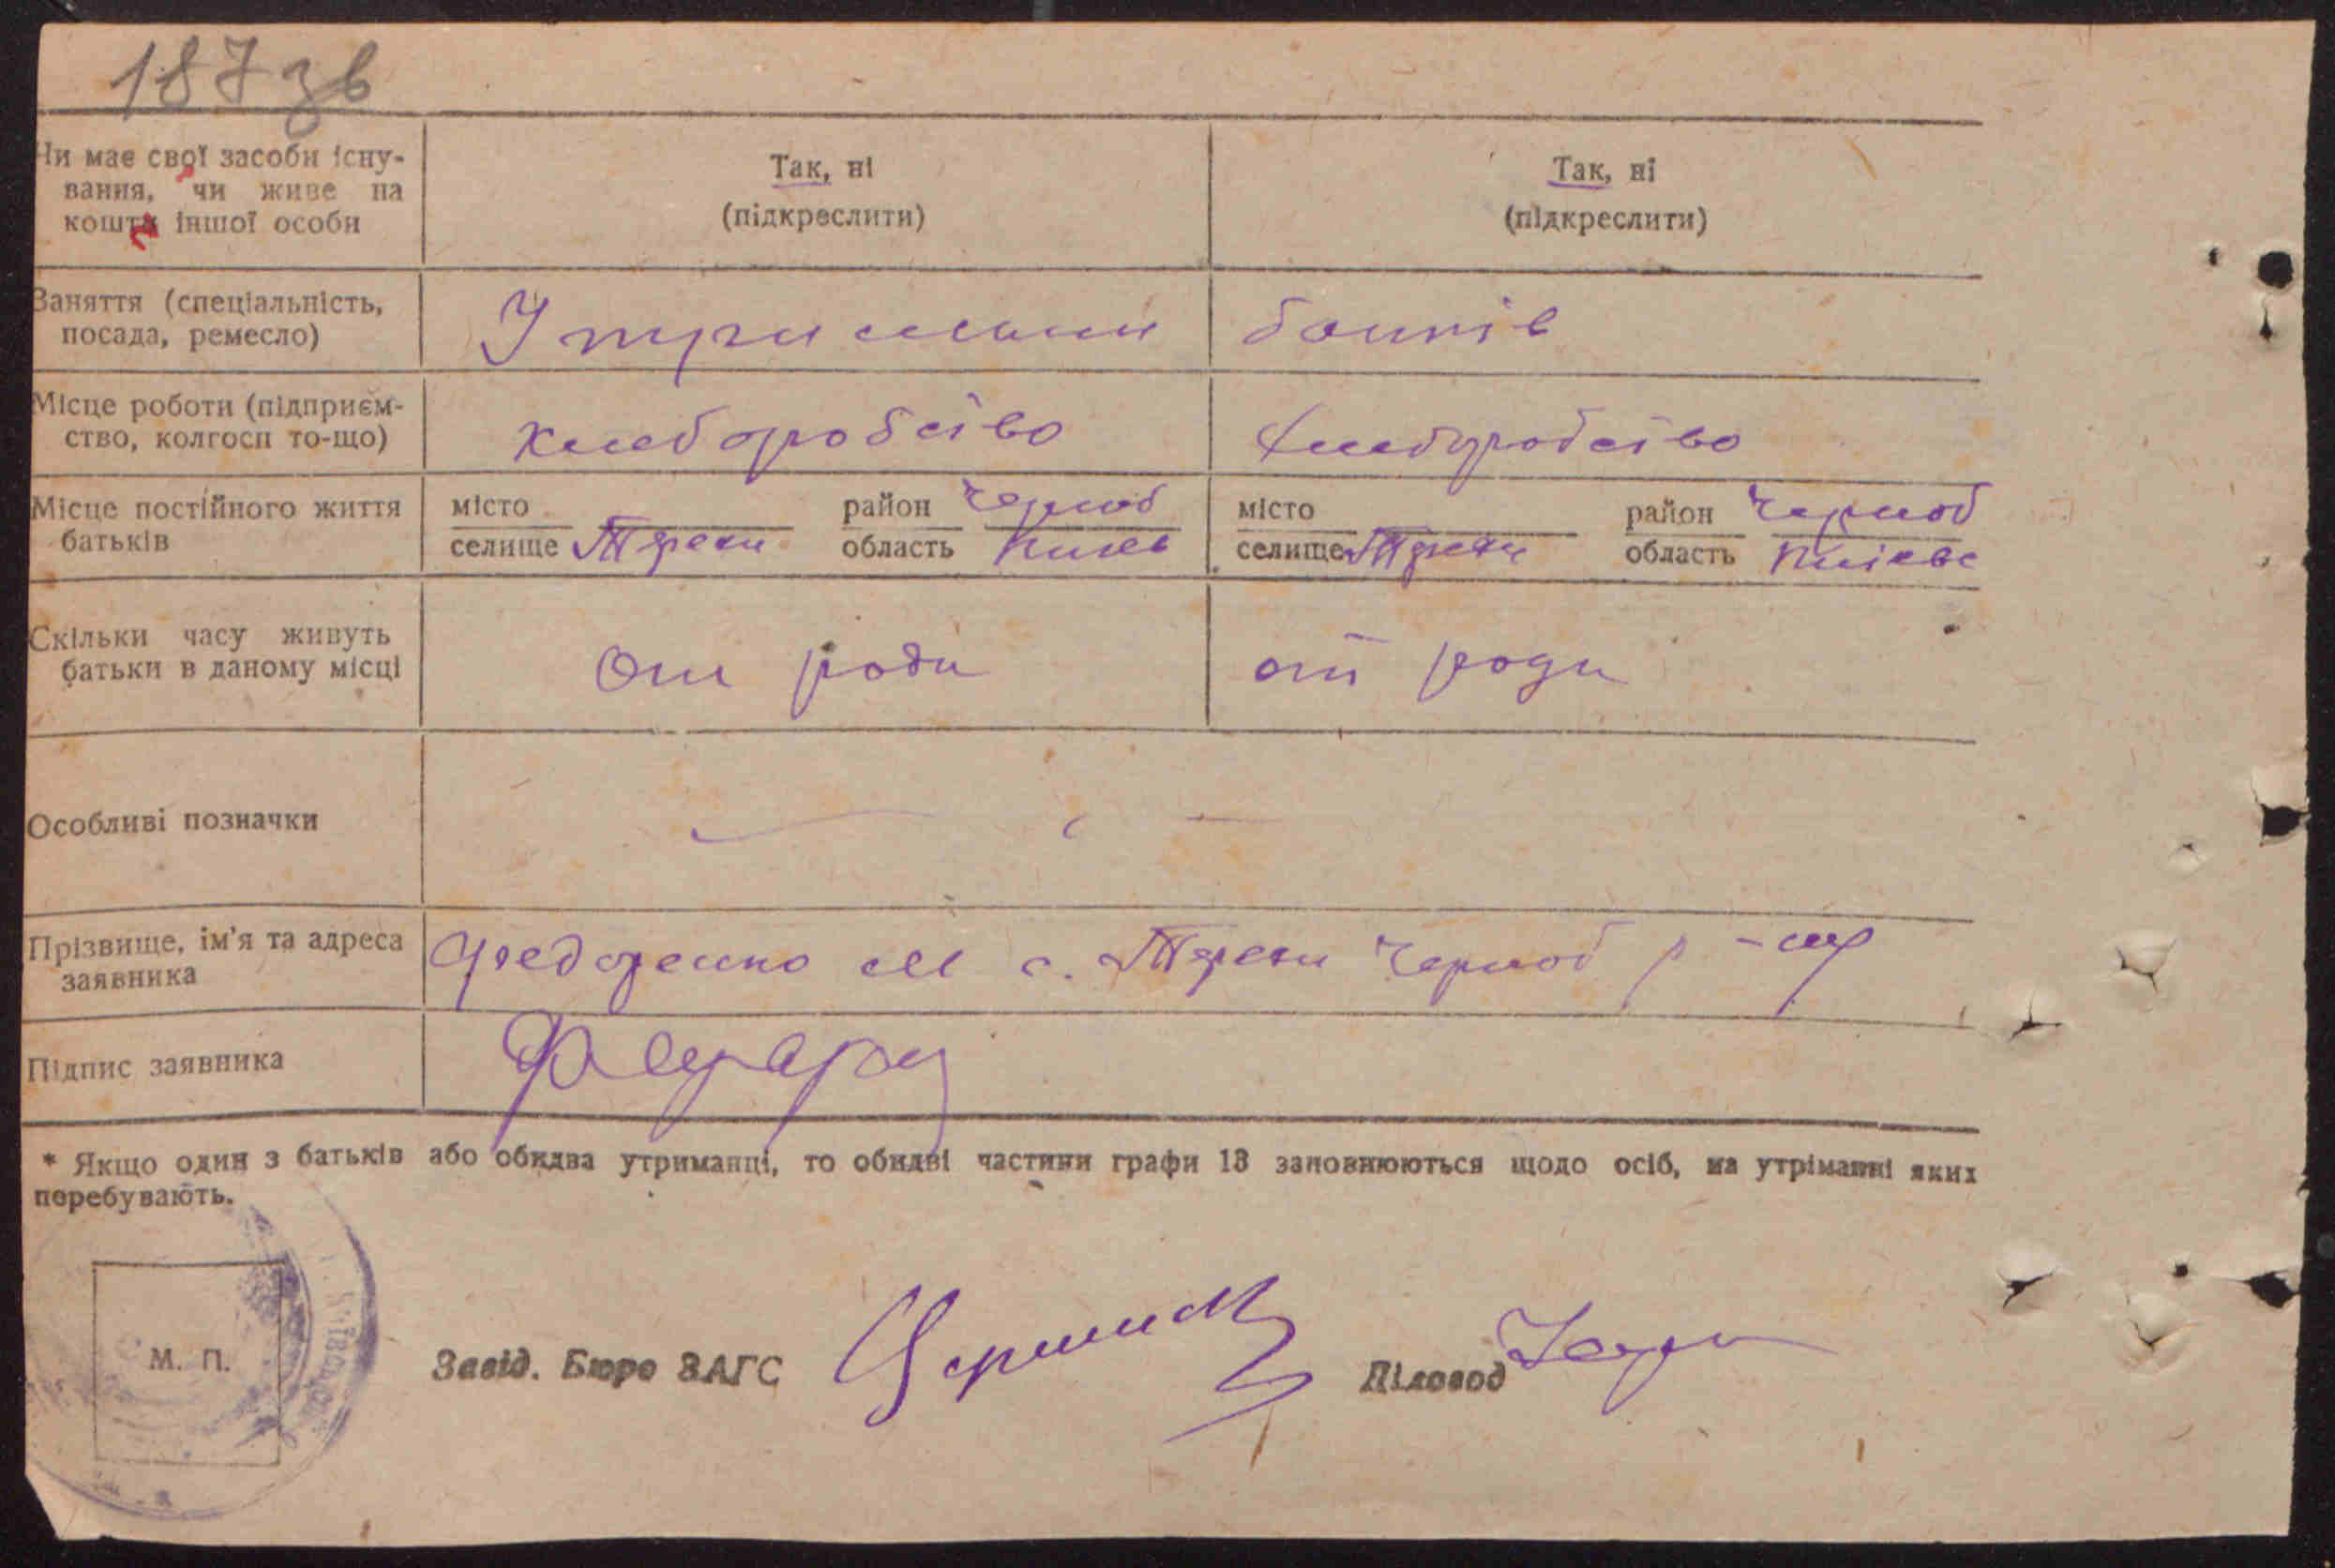 187 зв
Чи має свої засоби існу-
вання, чи живе на
кошти іншої особи
Так, ні
(підкреслити)
Так, ні
(підкреслити)
Заняття (спеціальність,
посада, ремесло)
батків
Місце роботи (підприєм-
ство, колгосп то-що)
хлеборобство
хлеборобство
Місце постійного життя
батьків
місто
селище
район Черноб
область Києв
місто
селище
район Черноб
область Києвс
Скільки часу живуть
батьки в даному місці
От роду
от роду
Особливі позначки
Прізвище, ім'я та адреса
заявника
Федоренко М с. Черноб р-ну
Підпис заявника
* Якщо один з батьків або обидва утриманці, то обидві частини графи 13 заповнюються щодо осіб, на утріманні яких
перебувають.
М. П.
Завід. Бюро ЗАГС
Діловод